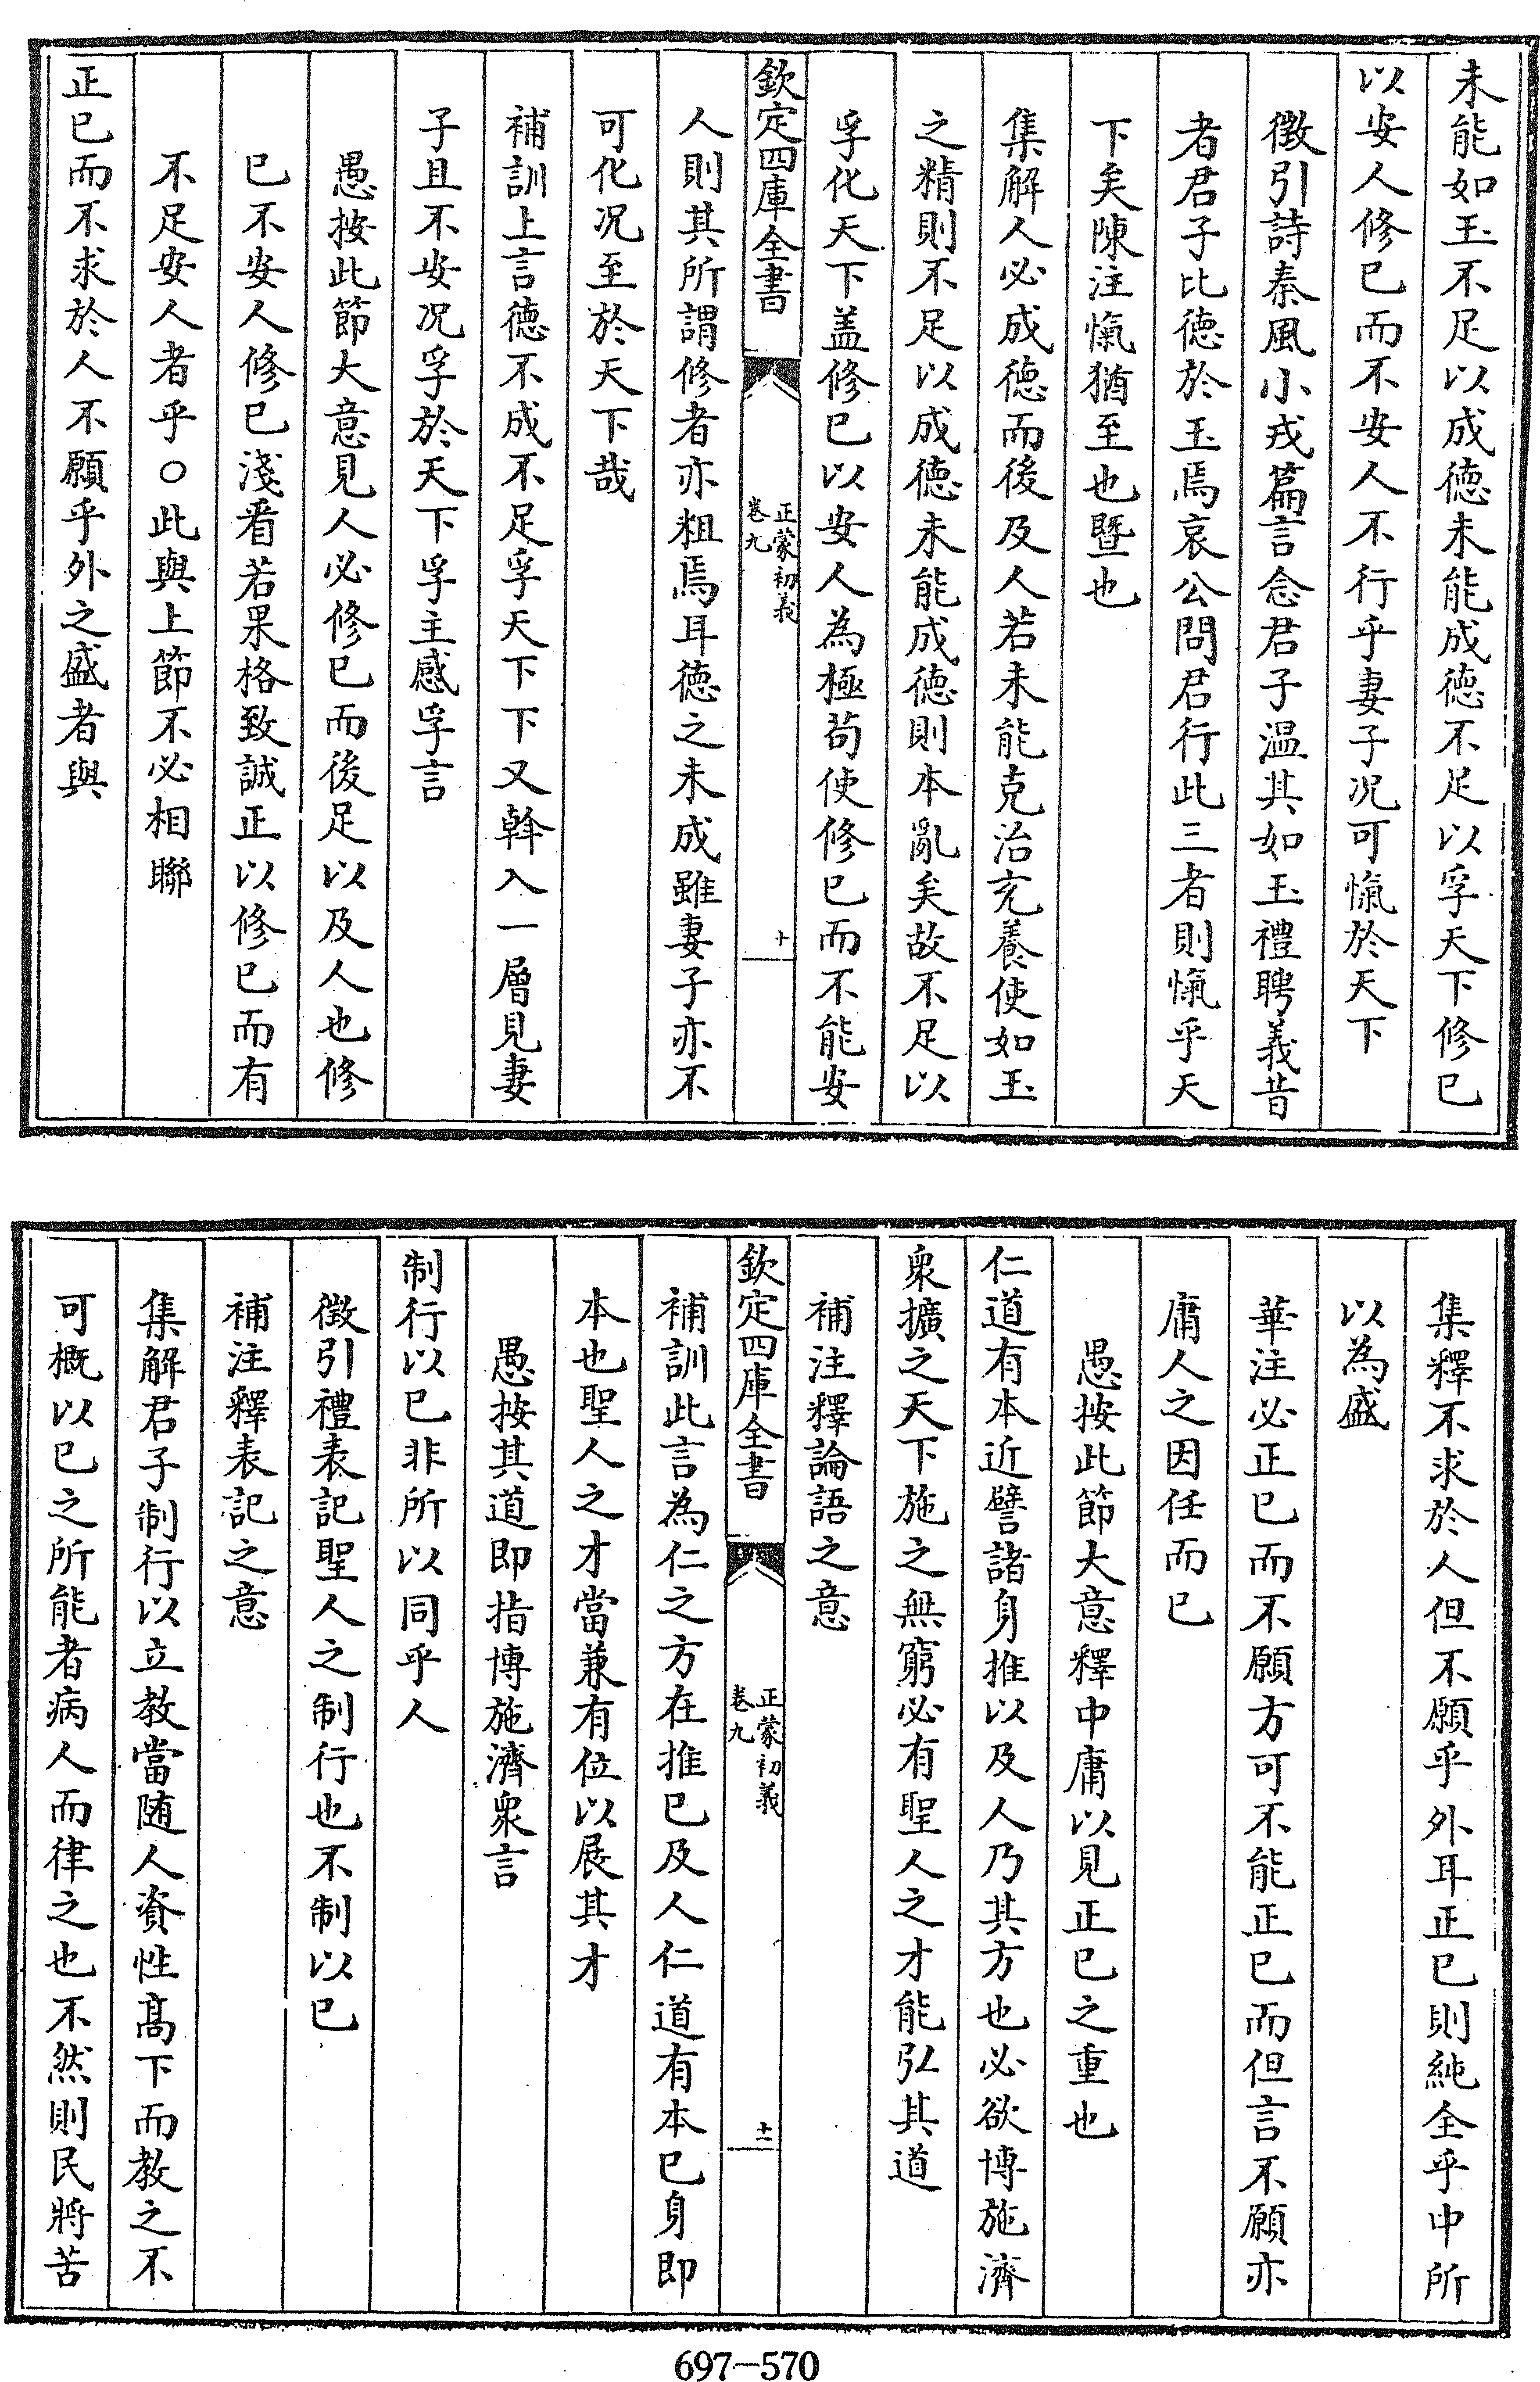 未能如玉不足以成德未能成德不足以孚天下修已
以安人修已而不安人不行乎妻子况可愾於天下
徴引詩秦風小戎篇言念君子温其如玉禮聘義昔
者君子比德於玉焉哀公問君行此三者則愾乎天
下矣陳注愾猶至也暨也
集解人必成德而後及人若未能克治充養使如玉
之精則不足以成德未能成德則本亂矣故不足以
孚化天下盖修已以安人為極苟使修已而不能安
欽定四庫全書
正蒙初義
卷九
十
人則其所謂修者亦粗焉耳德之未成雖妻子亦不
可化况至於天下哉
補訓上言德不成不足孚天下下又斡入一層見妻
子且不安况孚於天下孚主感孚言
愚按此節大意見人必修已而後足以及人也修
已不安人修已淺看若果格致誠正以修已而有
不足安人者乎○此與上節不必相聯
正已而不求於人不願乎外之盛者與
集釋不求於人但不願乎外耳正已則純全乎中所
以為盛
華注必正已而不願方可不能正已而但言不願亦
庸人之因任而已
愚按此節大意釋中庸以見正已之重也
仁道有本近譬諸身推以及人乃其方也必欲博施濟
衆擴之天下施之無窮必有聖人之才能弘其道
補注釋論語之意
欽定四庫全書
正蒙初義
卷九
十一
補訓此言為仁之方在推已及人仁道有本已身即
本也聖人之才當兼有位以展其才
愚按其道即指博施濟衆言
制行以已非所以同乎人
徴引禮表記聖人之制行也不制以已
補注釋表記之意
集解君子制行以立教當随人資性高下而教之不
可概以已之所能者病人而律之也不然則民將苦
697-570